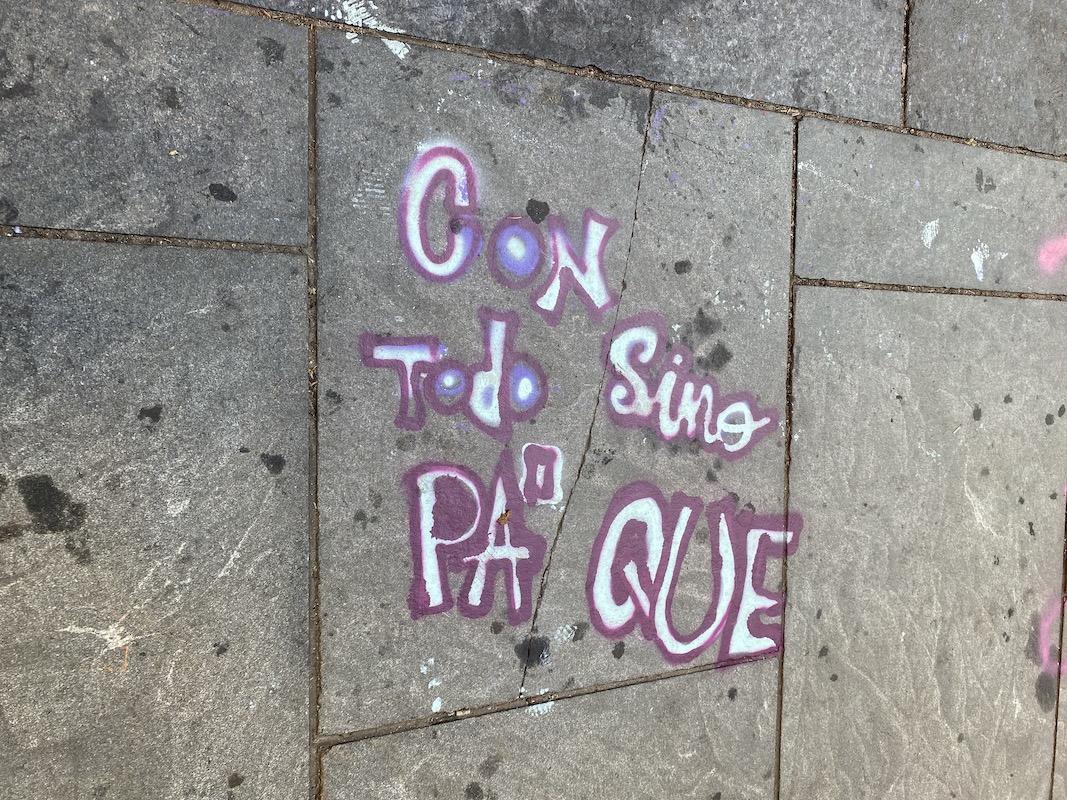 CON
Todo Sino
PA' QUE